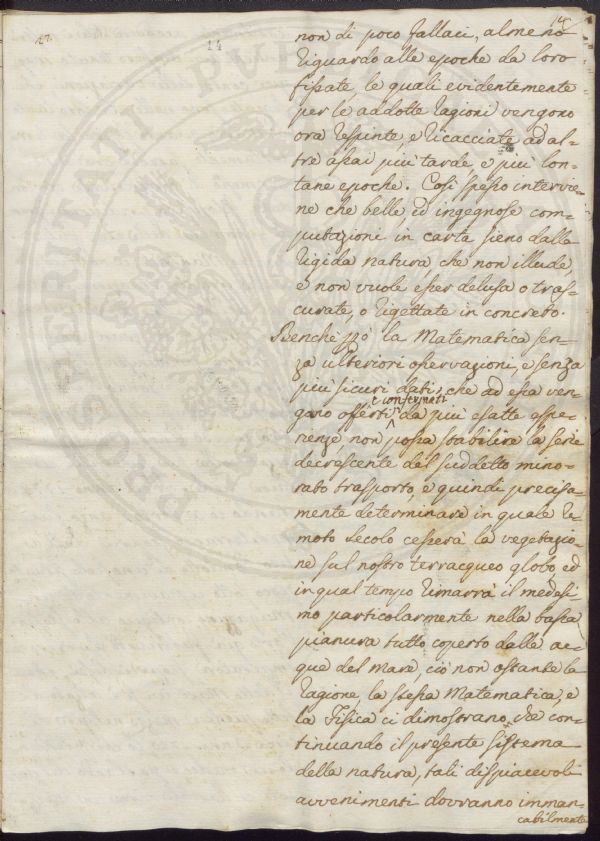 14
14
non di poco fallaci, almeno
riguardo alle epoche da loro
fissate, le quali evidentemente
per le addotte ragioni vengono
ora respinte, e ricacciate ad al=
tre assai più tarde, e più lon=
tane epoche. Così spesso intervie=
ne che belle, ed ingegnose com=
putazioni in carta sieno dalla
rigida natura, che non illude,
e non vuole esser delusa o tras=
curate, o rigettate in concreto.
Benchè però la Matematica sen=
za ulteriori osservazioni, e senza
più sicuri dati, che ad essa ven=
gano offerti e confermati da più esatte espe=
rienze, non possa stabilire la serie
decrescente del suddetto mino=
rato trasporto, e quindi precisa=
mente determinare in quale re=
moto secolo cesserà la vegetazio=
ne sul nostro terracqueo globo, ed
in qual tempo rimarrà il medesi=
mo particolarmente nella bassa
pianura tutto coperto dalle ac=
que del mare, ciò non ostante la
ragione, la stessa Matematica, e
la Fisica ci dimostrano, che con=
tinuando il presente sistema
della natura, tali dispiacevoli
avvenimenti dovranno imman=
cabilmente
PROSPERITATI PUBLICAE